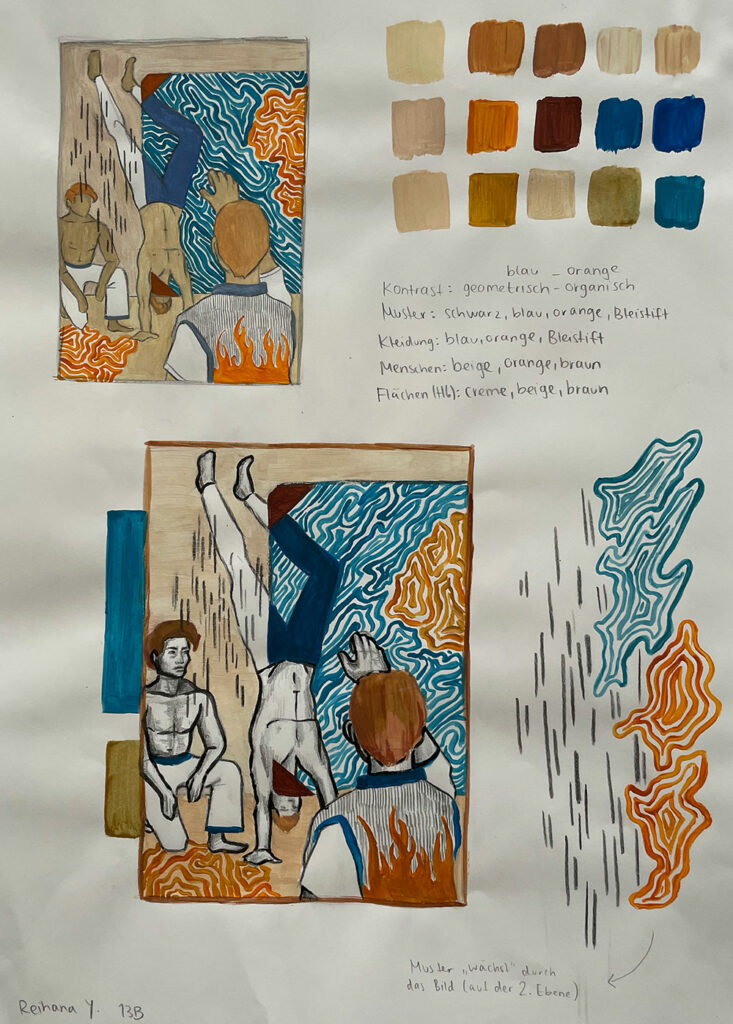 blau - orange
Kontrast: geometrisch-organisch
Muster: schwarz, blau, orange, Bleistift
Kleidung: blau, orange, Bleistift
Menschen: beige, orange, braun
Flächen (HG): creme, beige, braun
Muster „wächst" durch
das Bild (auf der 2. Ebene)
Reihana Y. 13B